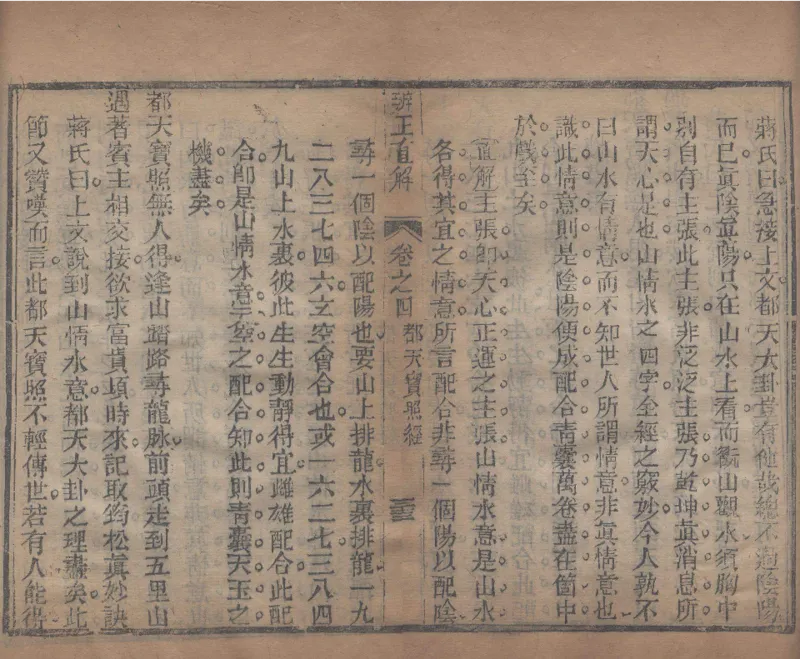 蔣氏曰急接上文都天大卦豈有他哉總不過陰陽
而巳眞陰眞陽只在山水上看而看山觀水須胸中
別自有主張此主張非泛泛主張乃乾坤眞消息所
謂天心是也山情水意四字全經之竅妙今人孰不
曰山水有情意而不知世人所謂情意非眞情意也
識此情意則是陰陽便成配合靑囊萬卷盡在箇中
於戲至矣
直解主張卽天心正運之主張山情水意是山水
各得其宜之情意所言配合非尋一個陽以配陰
辨正直解 卷之四 都天寶照經
尋一個陰以配陽也要山上排龍水裏排龍一九
二八三七四六玄空會合也或一六二七三八四
九山上水裏彼此生生動靜得宜雌雄配合此配
合卽是山情水意玄空之配合知此則靑囊天玉之
機盡矣
都天寶照無人得逢山踏路尋龍脉前頭走到五里山
遇著賓主相交接欲求富貴頃時來記取筠松眞妙訣
蔣氏曰上文說到山情水意都天大卦之理盡矣此
節又贊嘆而言此都天寶照不輕傳世若有人能得